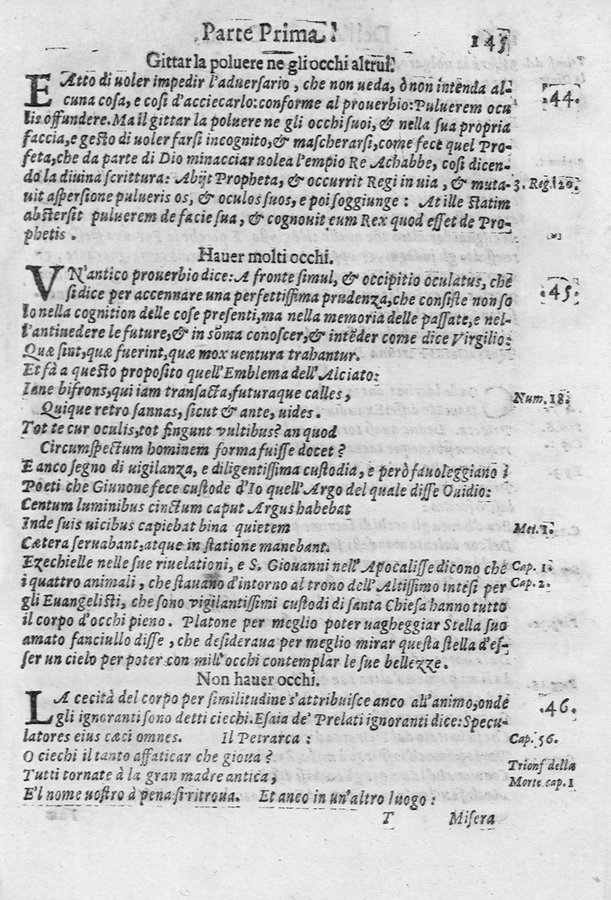 Parte Prima.
145
Gittar la poluere ne gli occhi altrui.
EAtto di uoler impedir l'aduersario, che non ueda, ò non intenda al-
44.
cuna cosa, e così d'acciecarlo: conforme al prouerbio: Puluerem ocu
lis offundere. Ma il gittar la poluere ne gli occhi suoi, & nella sua propria
faccia, e gesto di uoler farsi incognito, & mascherarsi, come fece quel Pro-
feta, che da parte di Dio minacciar uolea l'empio Re Achabbe, così dicen-
do la diuina scrittura: Abijt Propheta, & occurrit Regi in uia, & muta-
3. Reg. 20.
uit aspersione pulueris os, & oculos suos, e poi soggiunge: At ille statim
abstersit puluerem de facie sua, & cognouit eum Rex quod esset de Pro-
phetis.
Hauer molti occhi.
VN'antico prouerbio dice: A fronte simul, & occipitio oculatus, che
45.
si dice per accennare una perfettissima prudenza, che consiste non so
lo nella cognition delle cose presenti, ma nella memoria delle passate, e nel-
l'antiuedere le future, & in sõma conoscer, & intẽder come dice Virgilio:
Quæ sint, quæ fuerint, quæ mox uentura trahantur.
Et fà a questo proposito quell'Emblema dell'Alciato:
Iane bifrons, qui iam transacta, futuraque calles,
Num. 18.
Quique retro sannas, sicut & ante, uides.
Tot te cur oculis, tot fingunt vultibus? an quod
Circumspectum hominem forma fuisse docet?
E anco segno di uigilanza, e diligentissima custodia, e però fauoleggiano i
Poeti che Giunone fece custode d'Io quell'Argo del quale disse Ouidio:
Centum luminibus cinctum caput Argus habebat
Inde suis uicibus capiebat bina quietem
Met. 1.
Cætera seruabant, atque in statione manebant.
Ezechielle nelle sue riuelationi, e S. Giouanni nell'Apocalisse dicono che
Cap. 1.
i quattro animali, che stauano d'intorno al trono dell'Altissimo intesi per
Cap. 2.
gli Euangelisti, che sono vigilantissimi custodi di santa Chiesa hanno tutto
il corpo d'occhi pieno. Platone per meglio poter uagheggiar Stella suo
amato fanciullo disse, che desideraua per meglio mirar questa stella d'es-
ser un cielo per poter con mill'occhi contemplar le sue bellezze.
Non hauer occhi.
LA cecità del corpo per similitudine s'attribuisce anco all'animo, onde
46.
gli ignoranti sono detti ciechi. Esaia de' Prelati ignoranti dice: Specu-
latores eius cæci omnes. Il Petrarca:
Cap. 56.
O ciechi il tanto affaticar che gioua?
Trionf della
Tutti tornate à la gran madre antica,
Morte. cap. 1
E'l nome uostro à pena si ritroua. Et anco in un'altro luogo:
T Misera